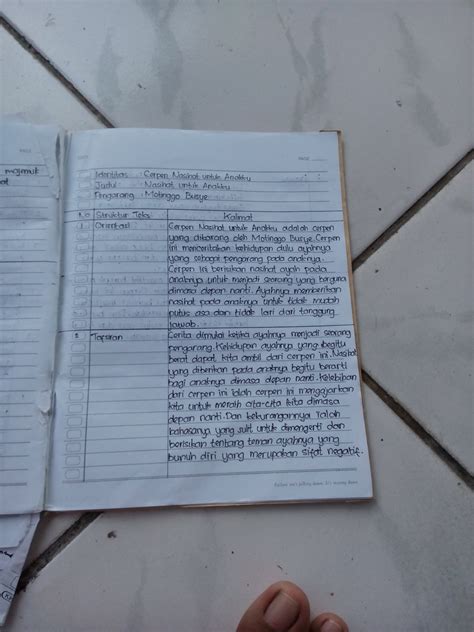 majemuk
Identitas : Cerpen Nasihat untuk Anakku
Judul : Nasihat untuk Anakku
Pengarang : Motinggo Busye
No Struktur Teks Kalimat
1. Orientasi Cerpen Nasihat untuk Anakku adalah cerpen
yang dikarang oleh Motinggo Busye. Cerpen
ini menceritakan kehidupan dulu ayahnya
yang sebagai pengarang pada anaknya.
Cerpen ini berisikan nasihat ayah pada
anaknya untuk menjadi seorang yang berguna
dimasa depan nanti. Ayahnya memberikan
nasihat pada anaknya untuk tidak mudah
putus asa dan tidak lari dari tanggung
jawab.
Tafsiran Cerita dimulai ketika ayahnya menjadi seorang
pengarang. Kehidupan ayahnya yang begitu
berat dapat kita ambil dari cerpen ini. Nasihat
yang diberikan pada anaknya begitu berarti
bagi anaknya dimasa depan nanti. Kelebihan
dari cerpen ini ialah cerpen ini mengajarkan
kita untuk meraih cita-cita kita dimasa
depan nanti. Dan kekurangannya ialah
bahasanya yang sulit untuk dimengerti dan
berisikan tentang teman ayahnya yang
bunuh diri yang merupakan sifat negatif.